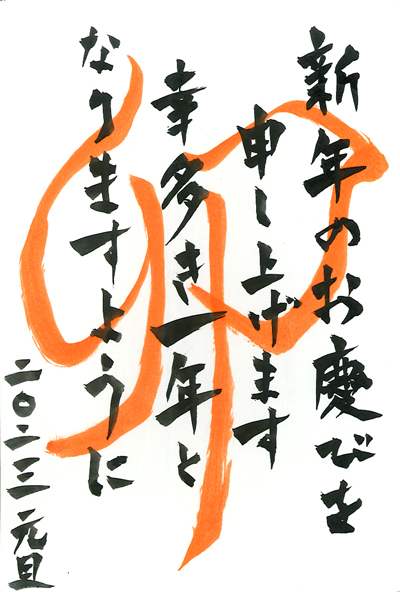 新年のお慶びを
申し上げます
幸多き一年と
なりますように
二〇二三 元旦
卯